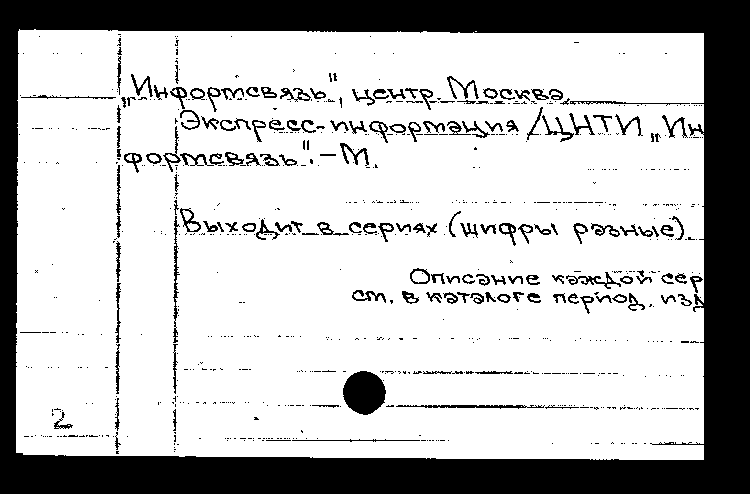 „Информсвязь", центр. Москва.
Экспресс-информация /ЦНТИ „Ин
формсвязь".–М.
Выходит в сериях (шифры разные).
Описание каждой сер
см. в каталоге период. изд
2